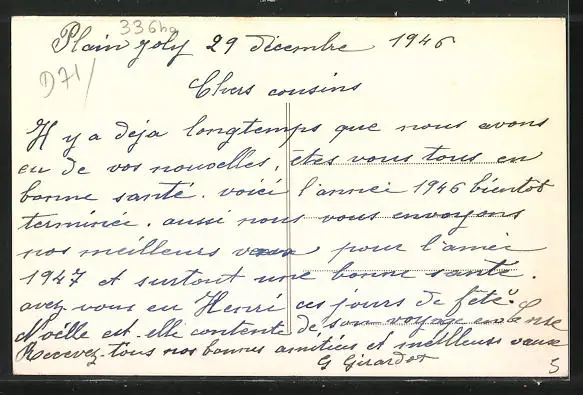 336hg
Plainjoly 29 décembre 1946
D71/
Chers cousins
Il y a déja longtemps que nous avons
eu de vos nouvelles, êtes vous tous en
bonne santé. voici l'année 1946 bientot
terminée. aussi nous vous envoyons
nos meilleurs vœux pour l'année
1947 et surtout une bonne santé.
avez vous eu Henri ces jours de fête
Noëlle est elle contente de son voyage en
Recevez tous nos bonnes amitiées et meilleurs vœux
G Girardot
5